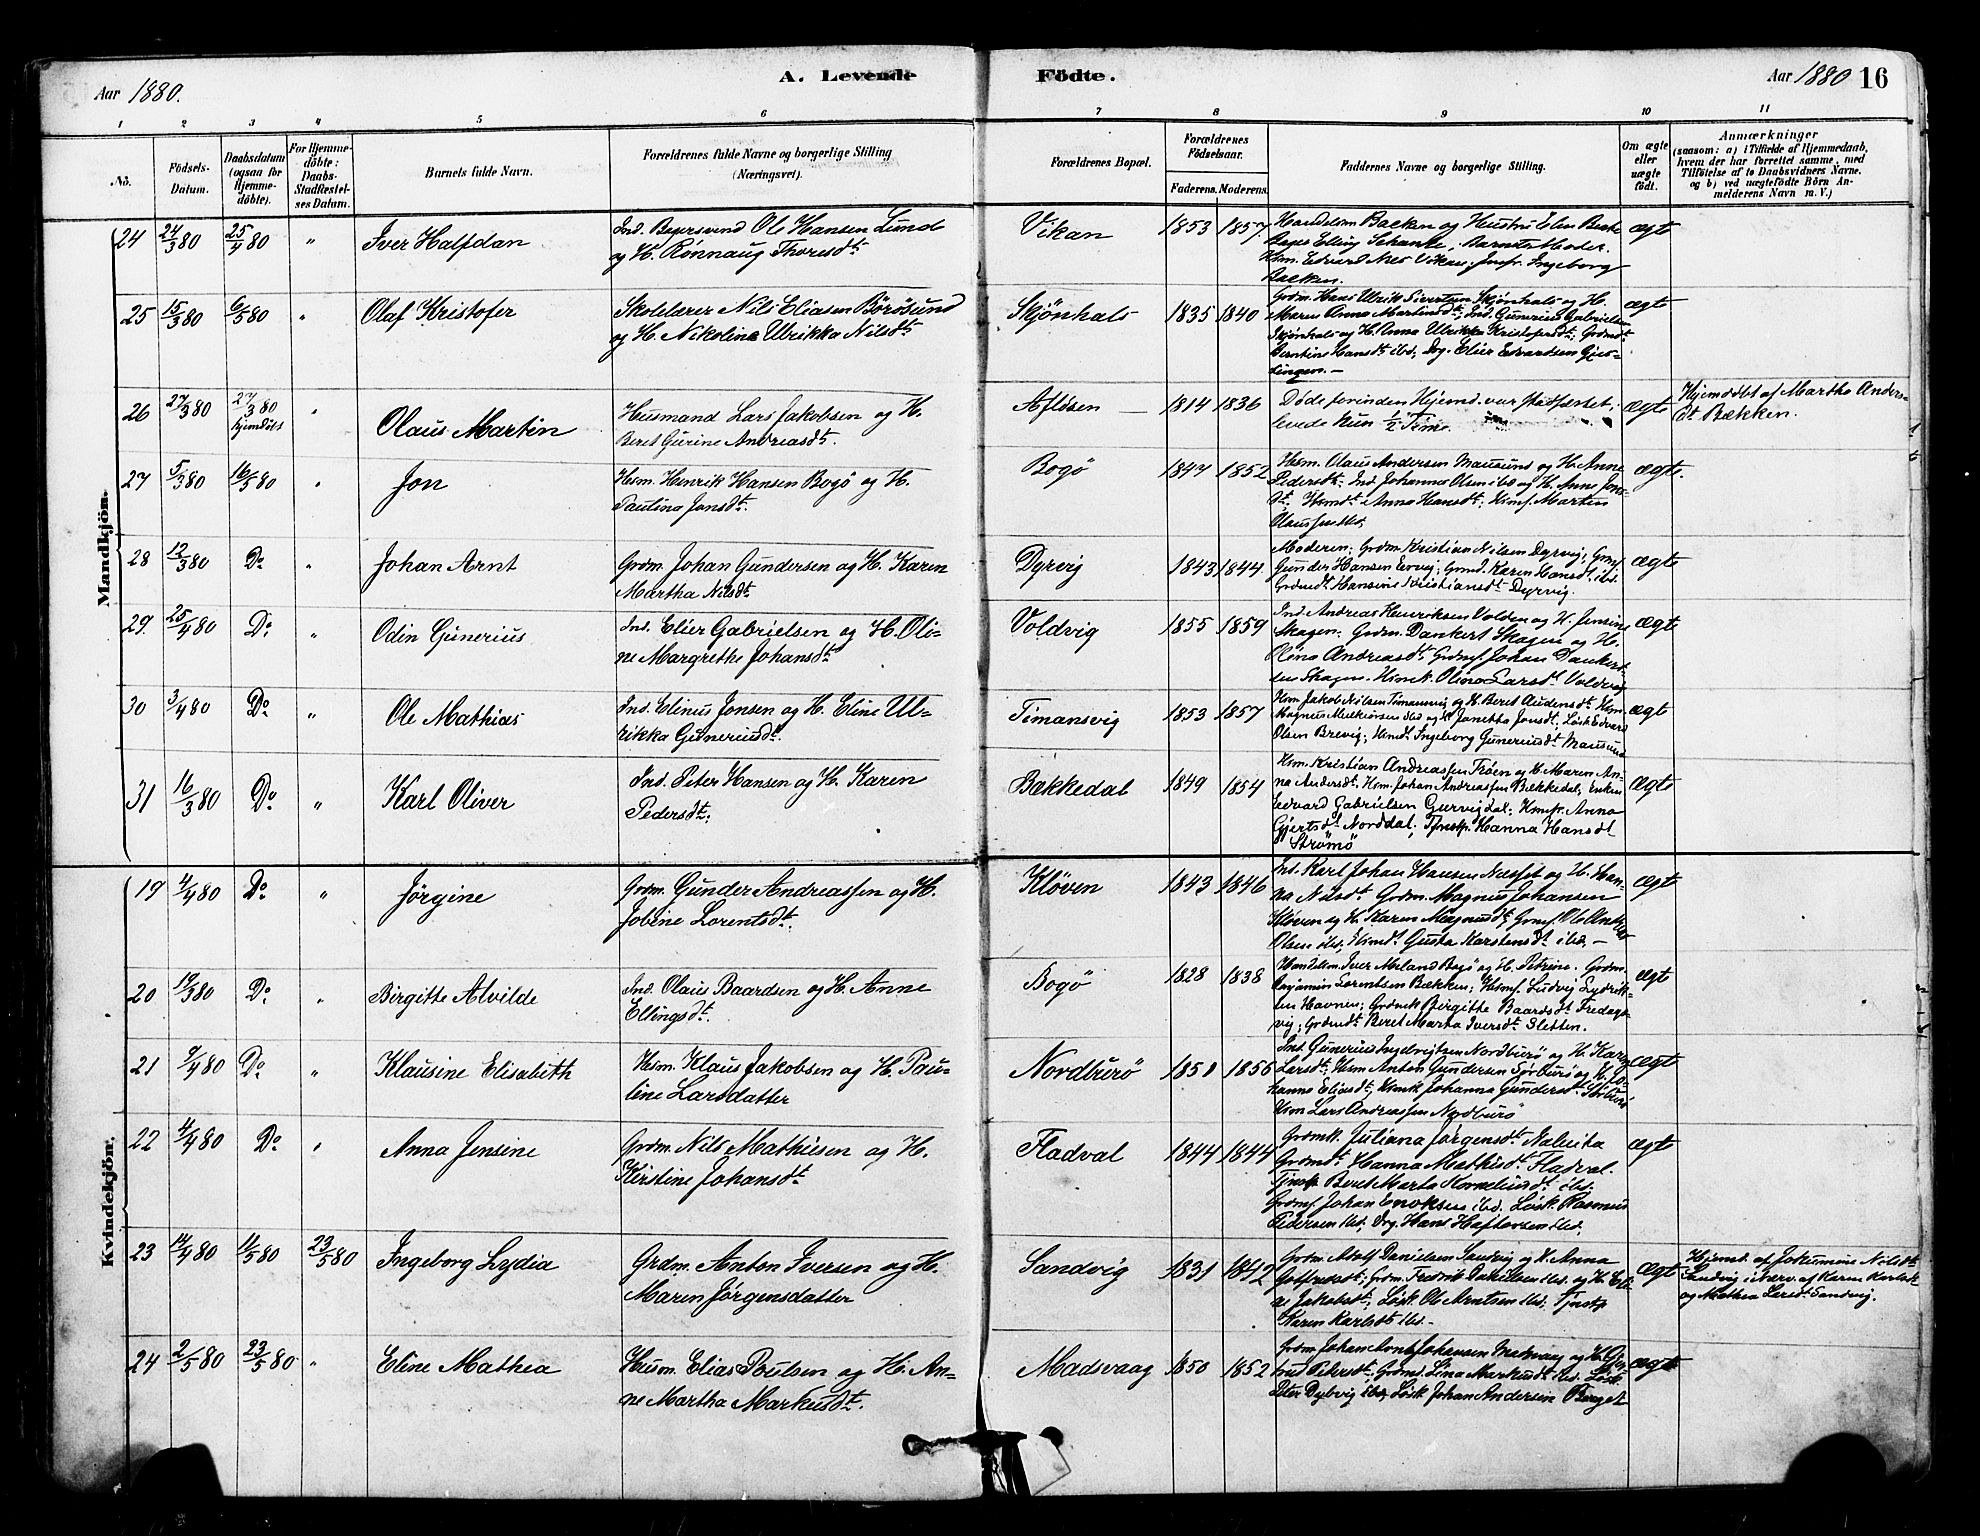 Aar 1880. A. Levende Fødte. Aar 1880 16
1 2 3 4 5 6 7 8 9 10 11
No. Fødsels-Datum. Daabsdatum (ogsaa for Hjemme-døbte). For Hjemme-døbte: Daabs-Stadfæstel-ses Datum. Barnets fulde Navn. Forældrenes fulde Navne og borgerlige Stilling (Næringsvei). Forældrenes Bopæl. Forældrenes Fødselsaar. Faderens. Moderens. Faddernes Navne og borgerlige Stilling. Om ægte eller uægte født. Anmærkninger (saasom: a) i Tilfælde af Hjemmedaab, hvem der har forrettet samme, med Tilføielse af to Daabsvidners Navne, og b) ved uægtefødte Børn An-melderens Navn m. V.)
Mandkjön.
24 24/3 80 25/4 80 " Iver Halfdan
Ind. Bøgersvend Ole Hansen Lund
og H. Rønnaug Thoresdt
Vikan 1853 1857
Handelsm Backen og Hustru Elen Berke
Elling Schanke, Barnets Moder.
Hsm. Edvard Vikan, Jmfr. Ingeborg
Backen.
ægte
25 15/3 80 6/5 80 " Olaf Kristofer
Skolelærer Nils Eliasen Børøsund
og H. Nikoline Ulrikka Nilsdt
Skjönhals 1835 1840
Grdm. Hans Ulrik Sivertsen Skjønhals og H.
Maren Anna Martinsdt; Ind. Gunerius Gabrielsen
Skjønhals og H. Anna Ulrikka Kristofersdt; Grdmdt
Berntine Hansdt ibd; Drg. Elier Edvardsen Gjes-
lingen. —
ægte
26 27/3 80 27/3 80 hjemdøbt " Olaus Martin
Husmand Lars Jakobsen og H.
Beret Gurine Andreasdt.
Afløsen 1814 1836
Døde forinden Hjemd. var stadfæstet;
levede kun 1/2 Time.
ægte
Hjemdøbt af Martha Anders-
dt Bækken.
27 5/3 80 16/5 80 " Jon
Hsm. Henrik Hansen Bogø og H.
Paulina Jonsdt.
Bogö 1847 1852
Hsm. Olaus Andersen Mausund og H. Anne
Pedersdt. Ind Johannes Olsen ibd og H. Anne Jons-
dt, Hsmdt Anna Hansdt; Hsmf. Martin
Olaussen ibd,
ægte.
28 12/3 80 Do " Johan Arnt
Grdm. Johan Gundersen og H. Karen
Martha Nilsdt.
Dyrvig 1843 1844
Moderen; Grdm. Kristian Nilsen Dyrvig; Grmf
Gunder Hansen Ervig; Grmd. Karen Hansdt ibd.
Grdmdt Hansine Kristiansdt Dyrvig.
ægte
29. 25/4 80 Do " Odin Gunerius
Ind. Elier Gabrielsen og H. Oli-
ne Margrethe Johansdt
Voldvig 1855 1859
Ind. Andreas Henriksen Volden og H. Jensine
Skagen; Grdm. Dankert Skagen og H.
Olina Andreasdt; Grdmf. Johan Dankert-
sen Skagen. Hsmk. Olina Larsdt Voldvig
ægte
30 3/4 80 Do " Ole Mathias
Ind. Elinus Jonsen og H. Eline Ul-
rikka Guneriusdt.
Timansvig 1853 1857
Hsm Jakob Nilsen Timansvig og H. Beret Audensdt Hsm.
Magnus Melkiorsen ibd og H. Janetta Jonsdt, Løsk Edvard
Olsen Brevig; Hsmdt Ingeborg Guneriusdt Mausund
ægte
31 16/3 80 Do " Karl Oliver
Ind. Peter Hansen og H. Karen
Pedersdt.
Bækkedal 1849 1854
Hsm. Kristian Andreassen Trøen og H. Maren An-
na Andersdt. Hsm. Johan Andreassen Bækkedal; Enkem
Edvard Gabrielsen Gurvigdal; Hsmfr. Anna
Gjertsdt Norddal; Tjnstp. Hanna Hansdt
Strømø
ægte
Kvindekjön.
19 4/4 80 Do " Jørgine
Grdm. Gunder Andreassen og H.
Jobine Lorentsdt.
Kløven 1843 1846
Ind. Karl Johan Hansen Næsset og H. Han-
na Nilsdt. Grdm. Magnus Johansen
Kløven og H. Karen Magnusdt; Grmf. Ole Anton
Olsen ibd, Hsmdt Gusta Karstensdt ibd, —
ægte
20 19/3 80 Do " Birgitte Alvilde
Ind. Olaus Baardsen og H. Anne
Ellingsdt.
Bogö 1828 1838
Handelsm. Iver Meland Bogø og H. Petrine. Grdm.
Benjamin Lorentsen Bækken; Hsmf. Ludvig Lydrik-
sen Havnen; Grdmk Birgitte Baardsdt Fredags-
vig; Grdmdt Beret Marta Iversdt Sletten.
ægte
21 9/4 80 Do " Klausine Elisabeth
Hsm. Klaus Jakobsen og H. Pau-
line Larsdatter
Nordburø 1851 1856
Ind. Gunerius Ingebrigtsen Nordburø og H. Karen
Larsdt; Hsm Anton Gundersen Sørburø og H. Jo-
hanna Eliasdt; Hsmk Johanna Gundersdt Sørburø
Hsm Lars Andreassen Nordburø
ægte
22 4/4 80 Do " Anna Jensine
Grdm. Nils Mathisen og H.
Kirstine Johansdt.
Fladval 1844 1844
Grdmk. Juliana Jørgensdt
Grdmdt Hanna Mathisdt Fladval.
Tjnstp Beret Marta Korneliusdt ibd.
Grdmf. Johan Enoksen ibd. Løsk. Rasmus
Pedersen ibd, Drg. Hans Haftorsen ibd.
ægte
23 14/4 80 11/5 80 23/5 80 Ingeborg Lydia
Grdm. Anton Iversen og H.
Maren Jørgensdatter
Sandvig 1831 1842
Grdm. Adolf Danielsen Sandvig og H. Anna
Gotfredsdt; Grdm. Fredrik Danielsen ibd. og H. Eli-
ne Jakobsdt; Løsk. Ole Arntsen ibd. Tjnstp
Karen Karlsdt ibd.-
ægte
Hjemd. af Jokumine Nilsdt
Sandvig i Nærv. af Karen Karlsdt
og Mathea Larsdt Sandvig.
24 2/5 80 23/5 80 " Eline Mathea
Husm. Elias Poulsen og H. An-
ne Martha Markusdt.
Madsvaag 1850 1852
Grdm Johan Arnt Johansen Madsvaag og H. Gjer-
trud Pedersdt; Grdmd. Lina Markusdt ibd. Løsk.
Peter Dyrvig ibd; Løsk Johan Andersen Berget
ægte